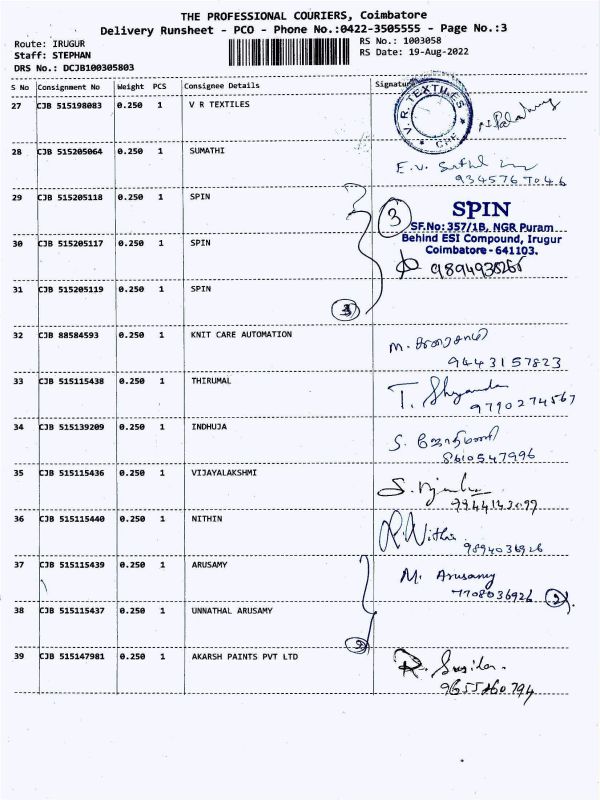 THE PROFESSIONAL COURIERS, Coimbatore
Delivery Runsheet - PCO - Phone No.:0422-3505555 - Page No.:3
Route: IRUGUR
Staff: STEPHAN
DRS No.: DCJB100305803
RS No.: 1003058
RS Date: 19-Aug-2022
S No Consignment No Weight PCS Consignee Details Signature
27 CJB 515198083 0.250 1 V R TEXTILES
V. R. TEXTILES * CBE *
28 CJB 515205064 0.250 1 SUMATHI
E.V.
29 CJB 515205118 0.250 1 SPIN
3
SPIN
SF.No: 357/1B, NGR Puram
30 CJB 515205117 0.250 1 SPIN
Behind ESI Compound, Irugur
Coimbatore - 641103.
31 CJB 515205119 0.250 1 SPIN
32 CJB 88584593 0.250 1 KNIT CARE AUTOMATION
M.
9443157823
33 CJB 515115438 0.250 1 THIRUMAL
T.
9790274567
34 CJB 515139209 0.250 1 INDHUJA
S.
8610547996
35 CJB 515115436 0.250 1 VIJAYALAKSHMI
S.
36 CJB 515115440 0.250 1 NITHIN
R. Nithi
9894036926
37 CJB 515115439 0.250 1 ARUSAMY
M. Arusamy
7708036926 2
38 CJB 515115437 0.250 1 UNNATHAL ARUSAMY
39 CJB 515147981 0.250 1 AKARSH PAINTS PVT LTD
R. Susila.
9655860794